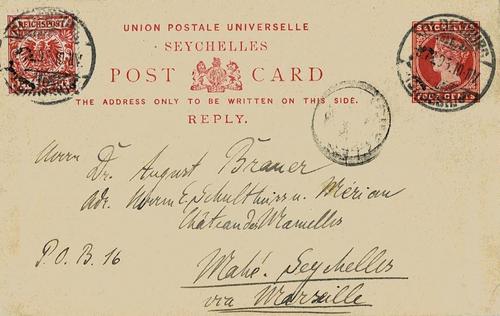 UNION POSTALE UNIVERSELLE
SEYCHELLES
POST CARD
THE ADDRESS ONLY TO BE WRITTEN ON THIS SIDE.
REPLY.
REICHSPOST
SEYCHELLES
FOUR CENTS
Herrn
Dr. August Brauer
adr. Herrn E. Schulthess u. Mérian
Château des Mamelles
P.O.B. 16
Mahé. Seychelles
via Marseille